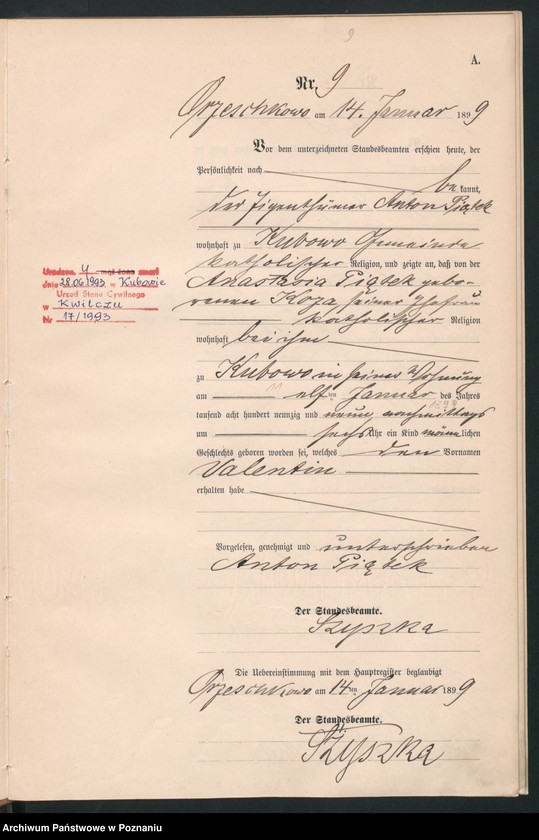 9
A.
Nr. 9
Orzeschkowo am 14. Januar 1899
Vor dem unterzeichneten Standesbeamten erschien heute, der
Persönlichkeit nach
be kannt,
der Eigenthümer Anton Piątek
wohnhaft zu Kubowo Gemeinde
katholischer Religion, und zeigte an, daß von der
Anastasia Piątek gebo-
renen Koza, seiner Ehefrau
katholischer Religion
wohnhaft bei ihm
zu Kubowo in seiner Wohnung
am elften Januar des Jahres
1899
tausend acht hundert neunzig und neun nachmittags
um sechs Uhr ein Kind männlichen
Geschlechts geboren worden sei, welches den Vornamen
Valentin
erhalten habe
Vorgelesen, genehmigt und unterschrieben
Anton Piątek
Der Standesbeamte.
Szyszka
Die Uebereinstimmung mit dem Hauptregister beglaubigt
Orzeschkowo am 14ten Januar 1899
Der Standesbeamte.
Szyszka
dnia 28.06.1993 w Kubowie
Urząd Stanu Cywilnego
w Kwilczu
Nr 17/1993
Archiwum Państwowe w Poznaniu